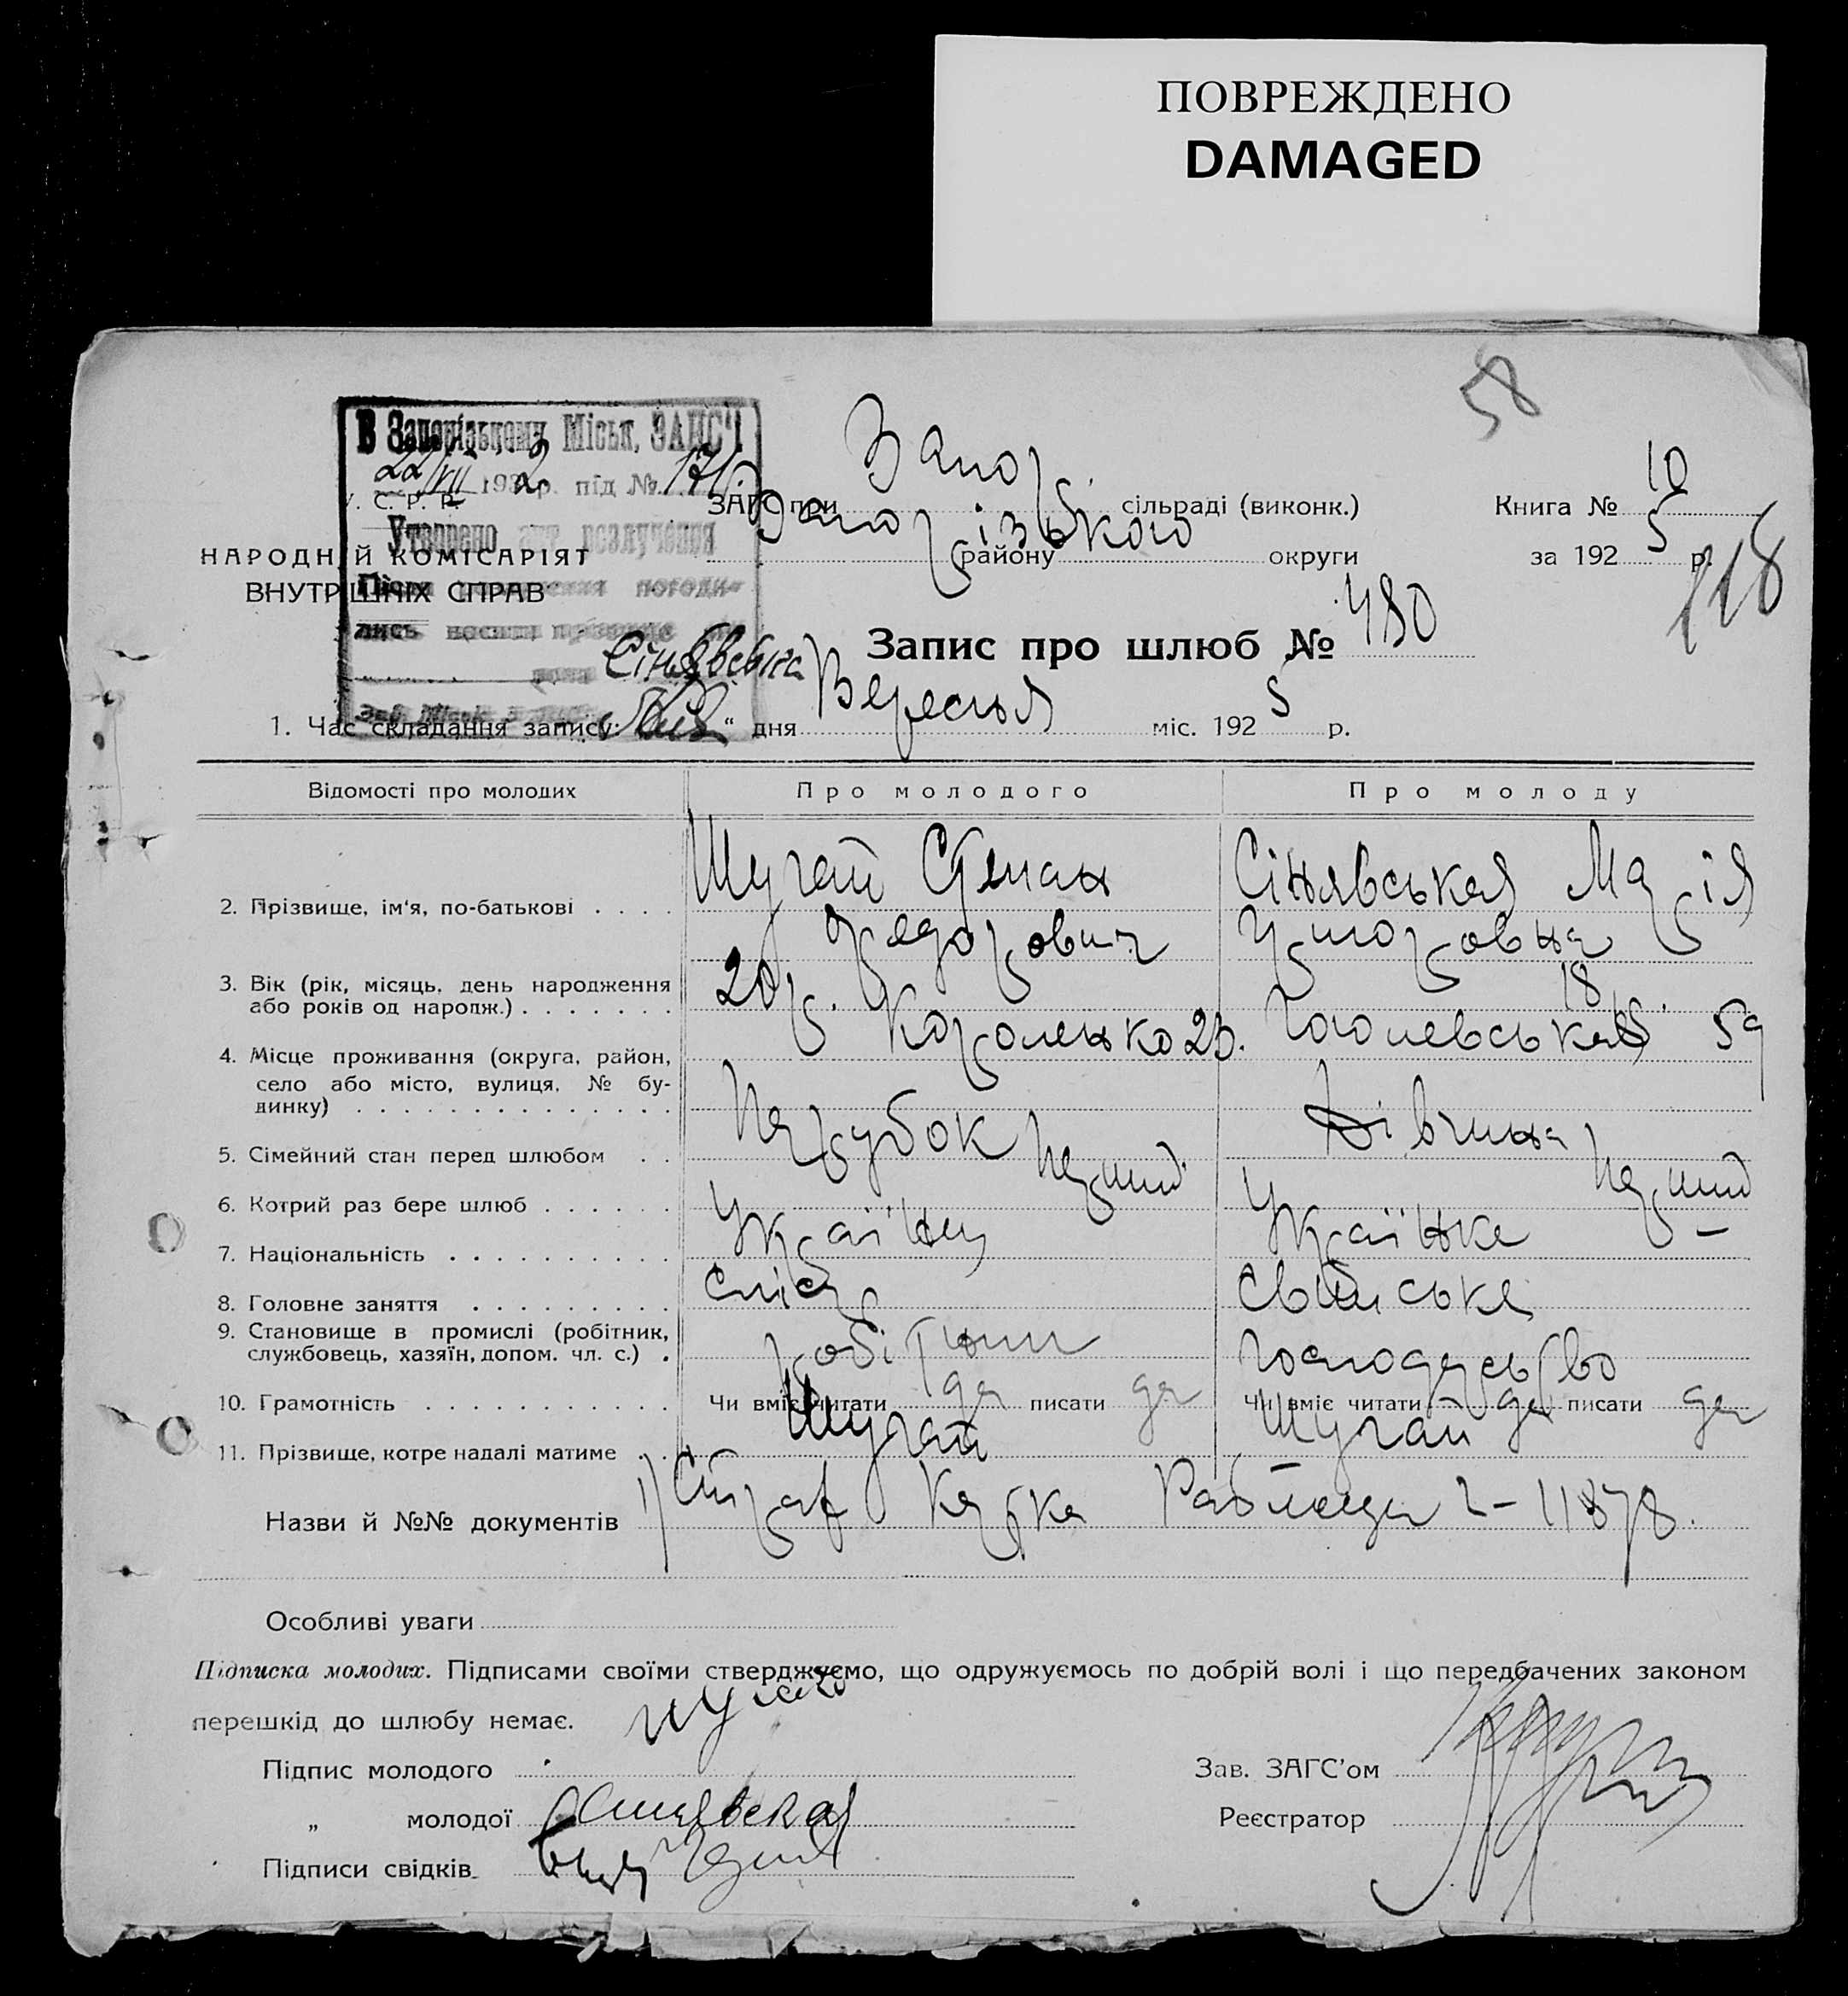 ПОВРЕЖДЕНО
DAMAGED
58
В Запорізькому Міськ. ЗАГС'І
22/VII 1932 р. під № 171
У. С. Р. Р.
Утворено акт розлучення
погоди-
лись носити
Сінявська
Запор.
ЗАГС при сільраді (виконк.)
Запорізького
району округи
Книга № 10
за 1925 р.
118
НАРОДНІЙ КОМІСАРІЯТ
ВНУТРІШНІХ СПРАВ
Запис про шлюб № 480
1. Час складання запису: " дня Вересня міс. 1925 р.
Відомості про молодих Про молодого Про молоду
2. Прізвище, ім'я, по-батькові . . . . Шугай Степан Федорович Сінявськая Марія Григоровна
3. Вік (рік, місяць, день народження
або років од народж.) . . . . . . . 20 р. 18 р.
4. Місце проживання (округа, район,
село або місто, вулиця, № бу-
динку) . . . . . . . . . . . . . . Короленко 23. Гоголевськая 59
5. Сімейний стан перед шлюбом . . Парубок Дівчина
6. Котрий раз бере шлюб . . . . . . Перший Перший
7. Національність . . . . . . . . . . Українец Українка
8. Головне заняття . . . . . . . . . слюсар
9. Становище в промислі (робітник,
службовець, хазяїн, допом. чл. с.) . робітник господарство
10. Грамотність . . . . . . . . . . . Чи вміє читати да писати да Чи вміє читати да писати да
11. Прізвище, котре надалі матиме . . Шугай Шугай
Назви й №№ документів 1) Страх карка 2-11878.
Особливі уваги
Підписка молодих. Підписами своїми стверджуємо, що одружуємось по добрій волі і що передбачених законом
перешкід до шлюбу немає.
Підпис молодого Шугай
Зав. ЗАГС'ом
„ молодої Синявская
Реєстратор
Підписи свідків